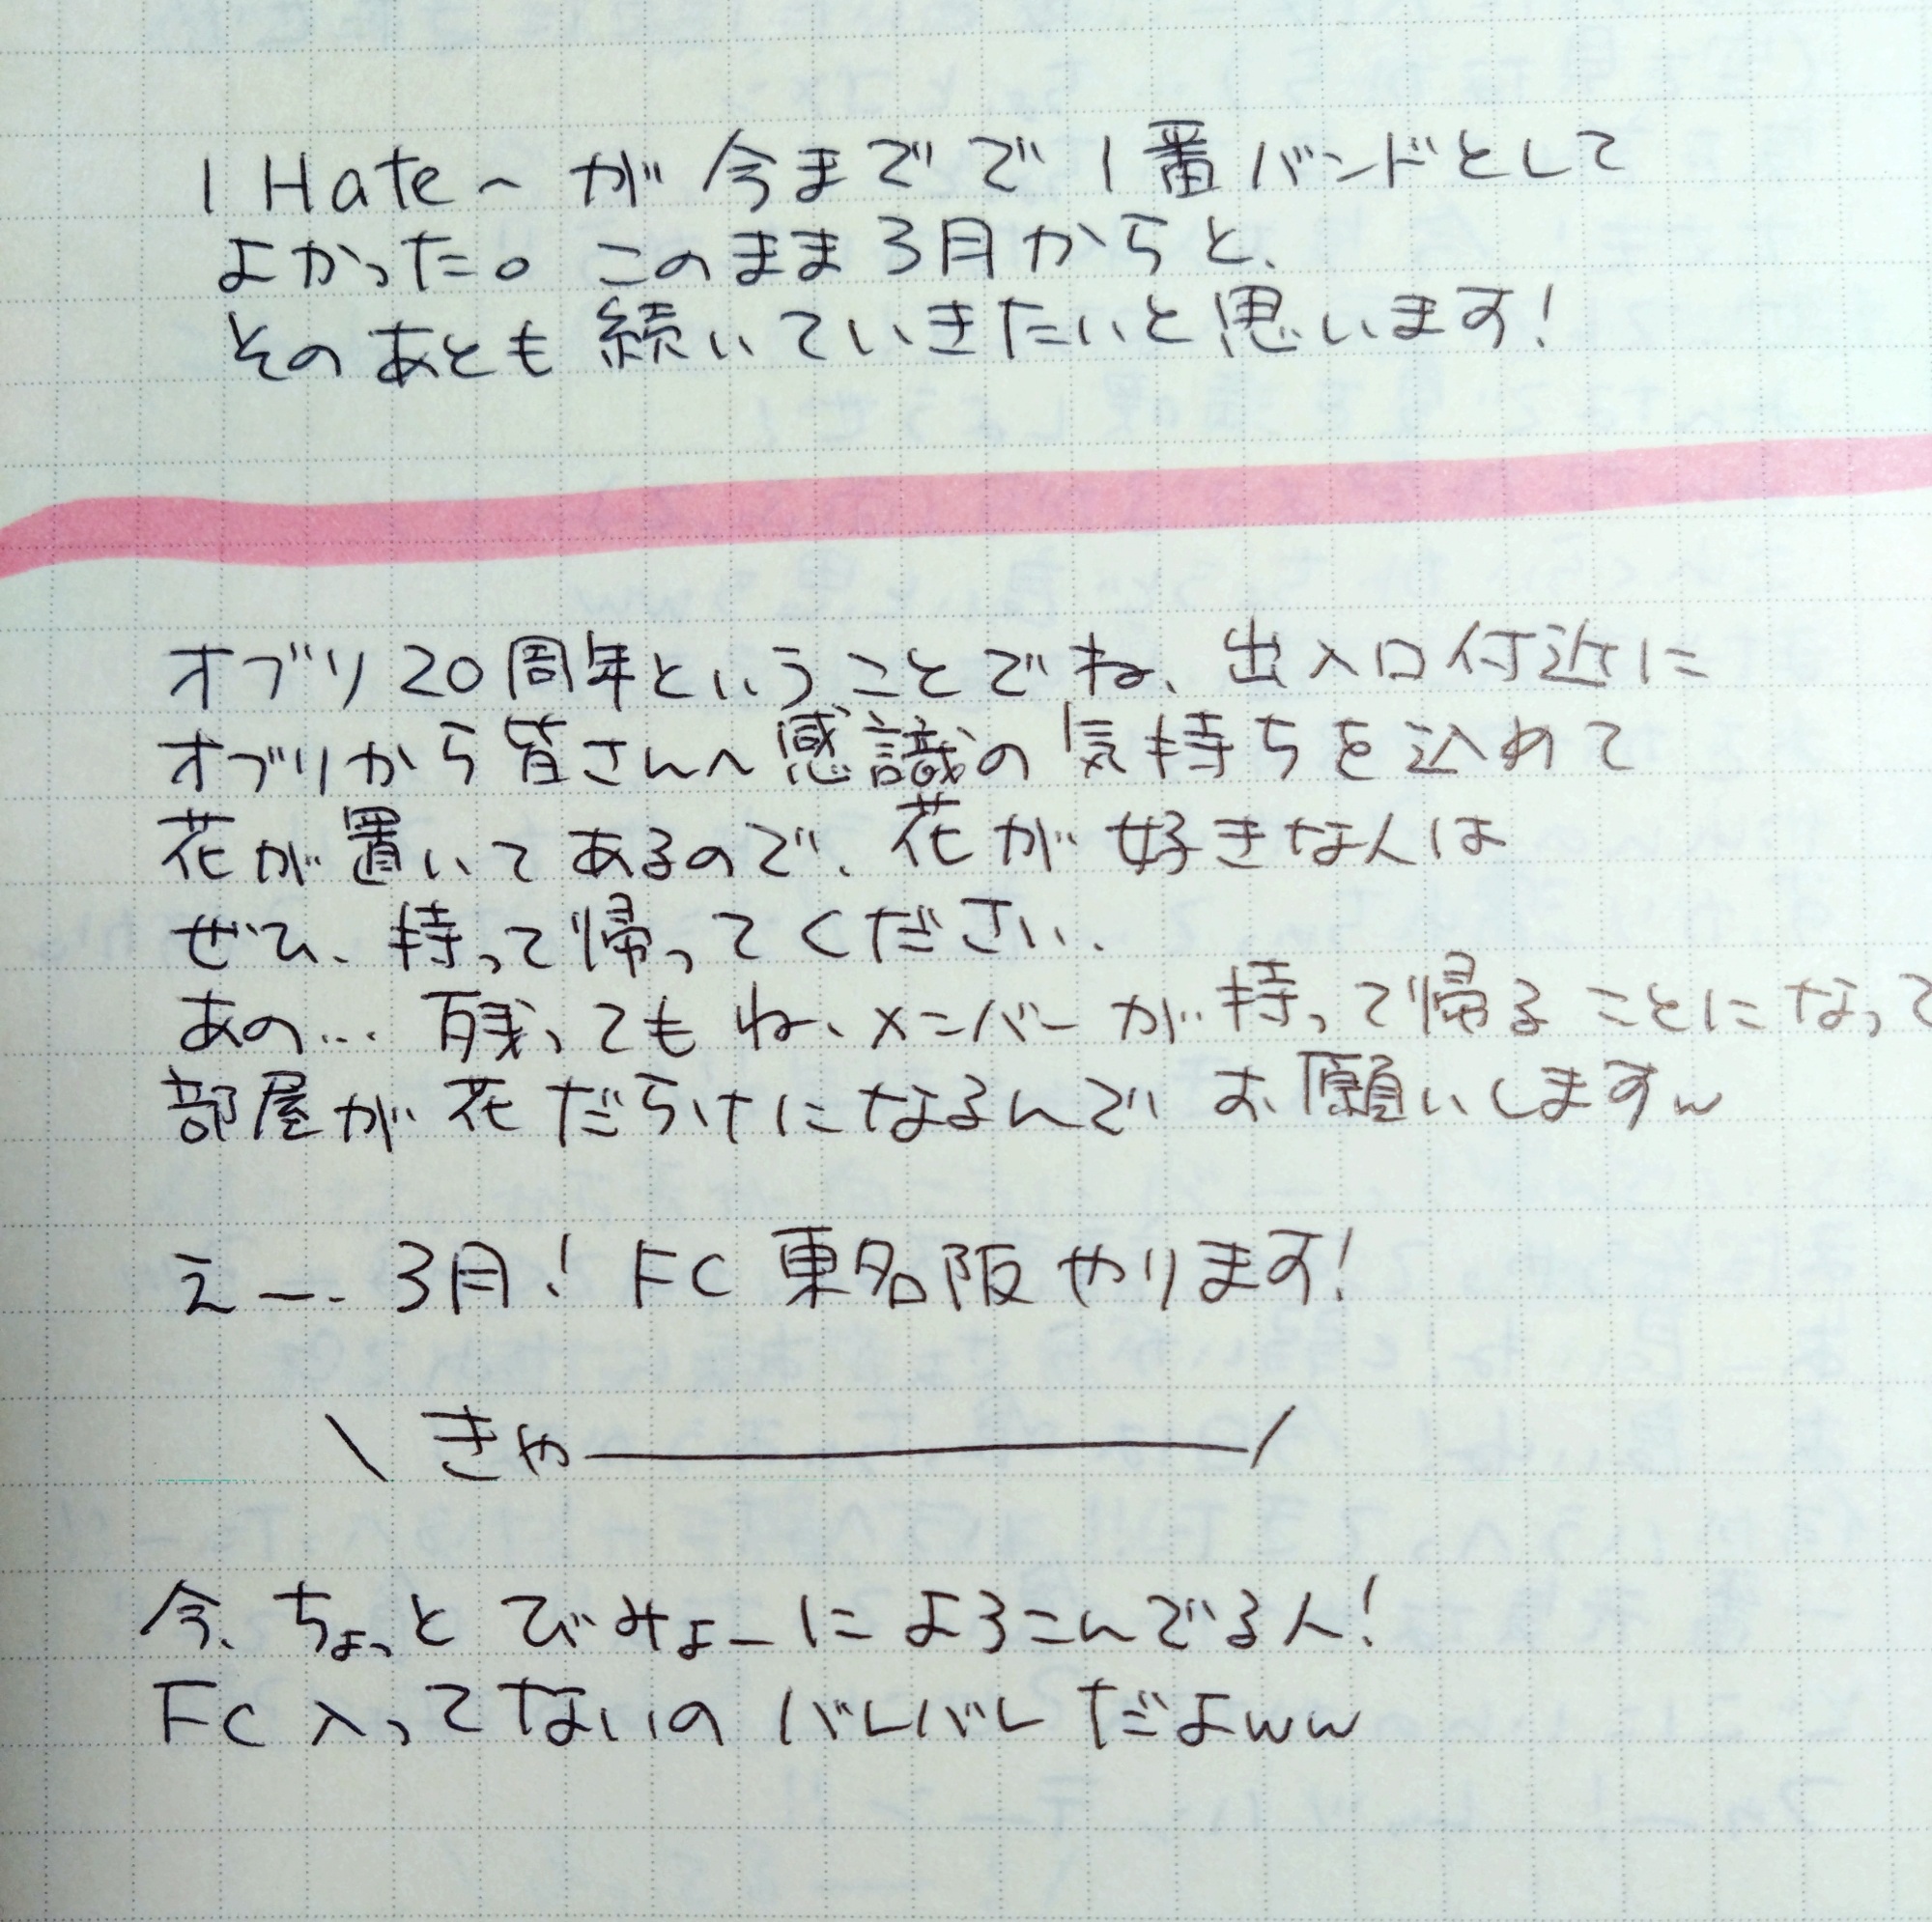 I Hate〜が今までで1番バンドとして
よかった。このまま3月からと、
そのあとも続いていきたいと思います!
オブリ20周年ということでね、出入口付近に
オブリから皆さんへ感識の気持ちを込めて
花が置いてあるので、花が好きな人は
ぜひ、持って帰ってください、
あの… 残ってもね、メンバーが持って帰ることになって
部屋が花だらけになるんでお願いしますw
えー、3月! FC 東名阪やります!
\ きゃー /
今、ちょっとびみょーによろこんでる人!
FC入ってないのバレバレだよww